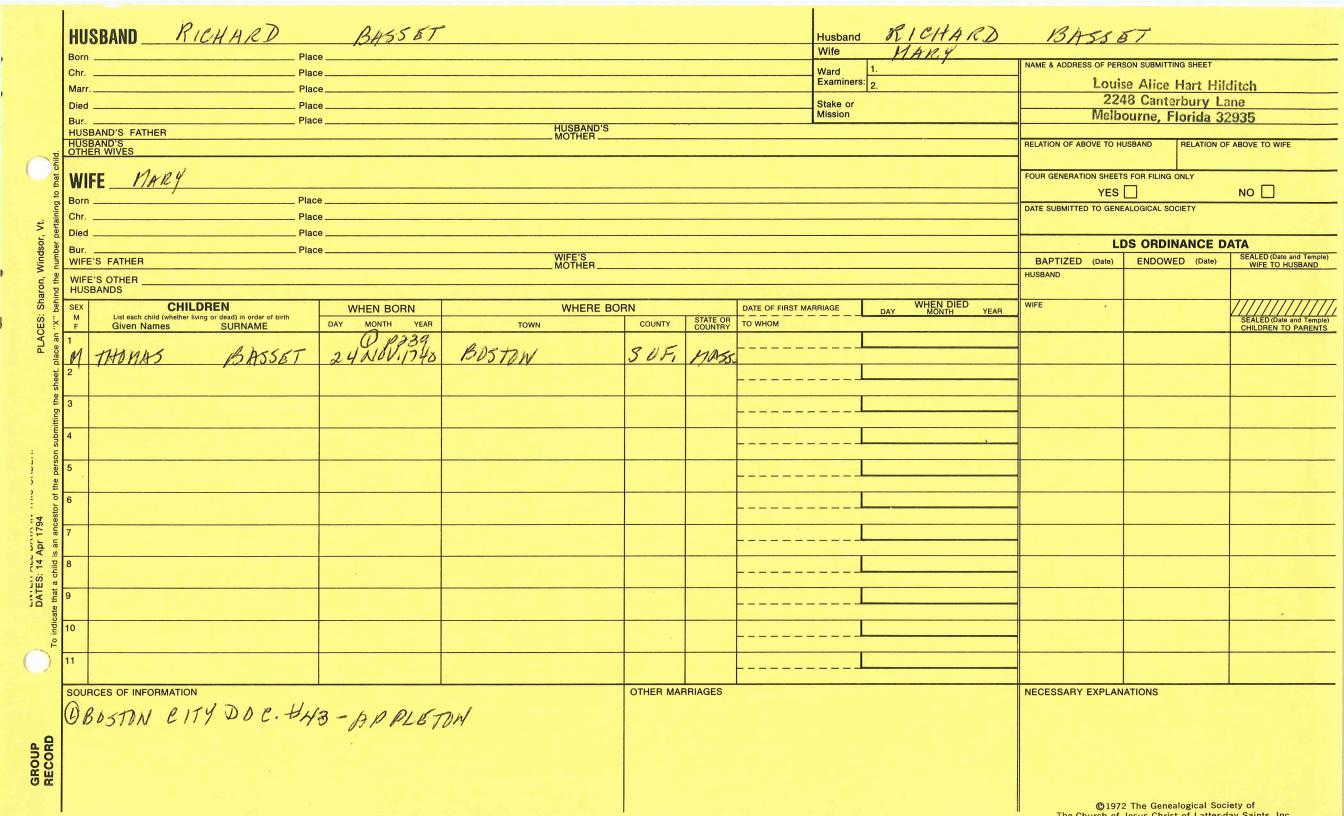 HUSBAND RICHARD BASSET
Born Place
Chr. Place
Marr. Place
Died Place
Bur. Place
HUSBAND'S FATHER HUSBAND'S MOTHER
HUSBAND'S OTHER WIVES
WIFE MARY
Born Place
Chr. Place
Died Place
Bur. Place
WIFE'S FATHER WIFE'S MOTHER
WIFE'S OTHER HUSBANDS
Husband RICHARD BASSET
Wife MARY
Ward Examiners: 1.
2.
Stake or Mission
NAME & ADDRESS OF PERSON SUBMITTING SHEET
Louise Alice Hart Hilditch
2248 Canterbury Lane
Melbourne, Florida 32935
RELATION OF ABOVE TO HUSBAND RELATION OF ABOVE TO WIFE
FOUR GENERATION SHEETS FOR FILING ONLY
YES NO
DATE SUBMITTED TO GENEALOGICAL SOCIETY
LDS ORDINANCE DATA
BAPTIZED (Date) ENDOWED (Date) SEALED (Date and Temple) WIFE TO HUSBAND
HUSBAND
WIFE
SEALED (Date and Temple) CHILDREN TO PARENTS
SEX M F
CHILDREN
List each child (whether living or dead) in order of birth
Given Names SURNAME
WHEN BORN
DAY MONTH YEAR
WHERE BORN
TOWN COUNTY STATE OR COUNTRY
DATE OF FIRST MARRIAGE
TO WHOM
WHEN DIED
DAY MONTH YEAR
1 ① p239
M THOMAS BASSET 24 NOV. 1740 BOSTON SUF. MASS.
2
3
4
5
6
7
8
9
10
11
SOURCES OF INFORMATION OTHER MARRIAGES NECESSARY EXPLANATIONS
① BOSTON CITY DOC. #43 - APPLETON
©1972 The Genealogical Society of
The Church of Jesus Christ of Latter-day Saints, Inc.
PLACES: Sharon, Windsor, Vt.
DATES: 14 Apr 1794
To indicate that a child is an ancestor of the person submitting the sheet, place an "X" behind the number pertaining to that child.
GROUP RECORD